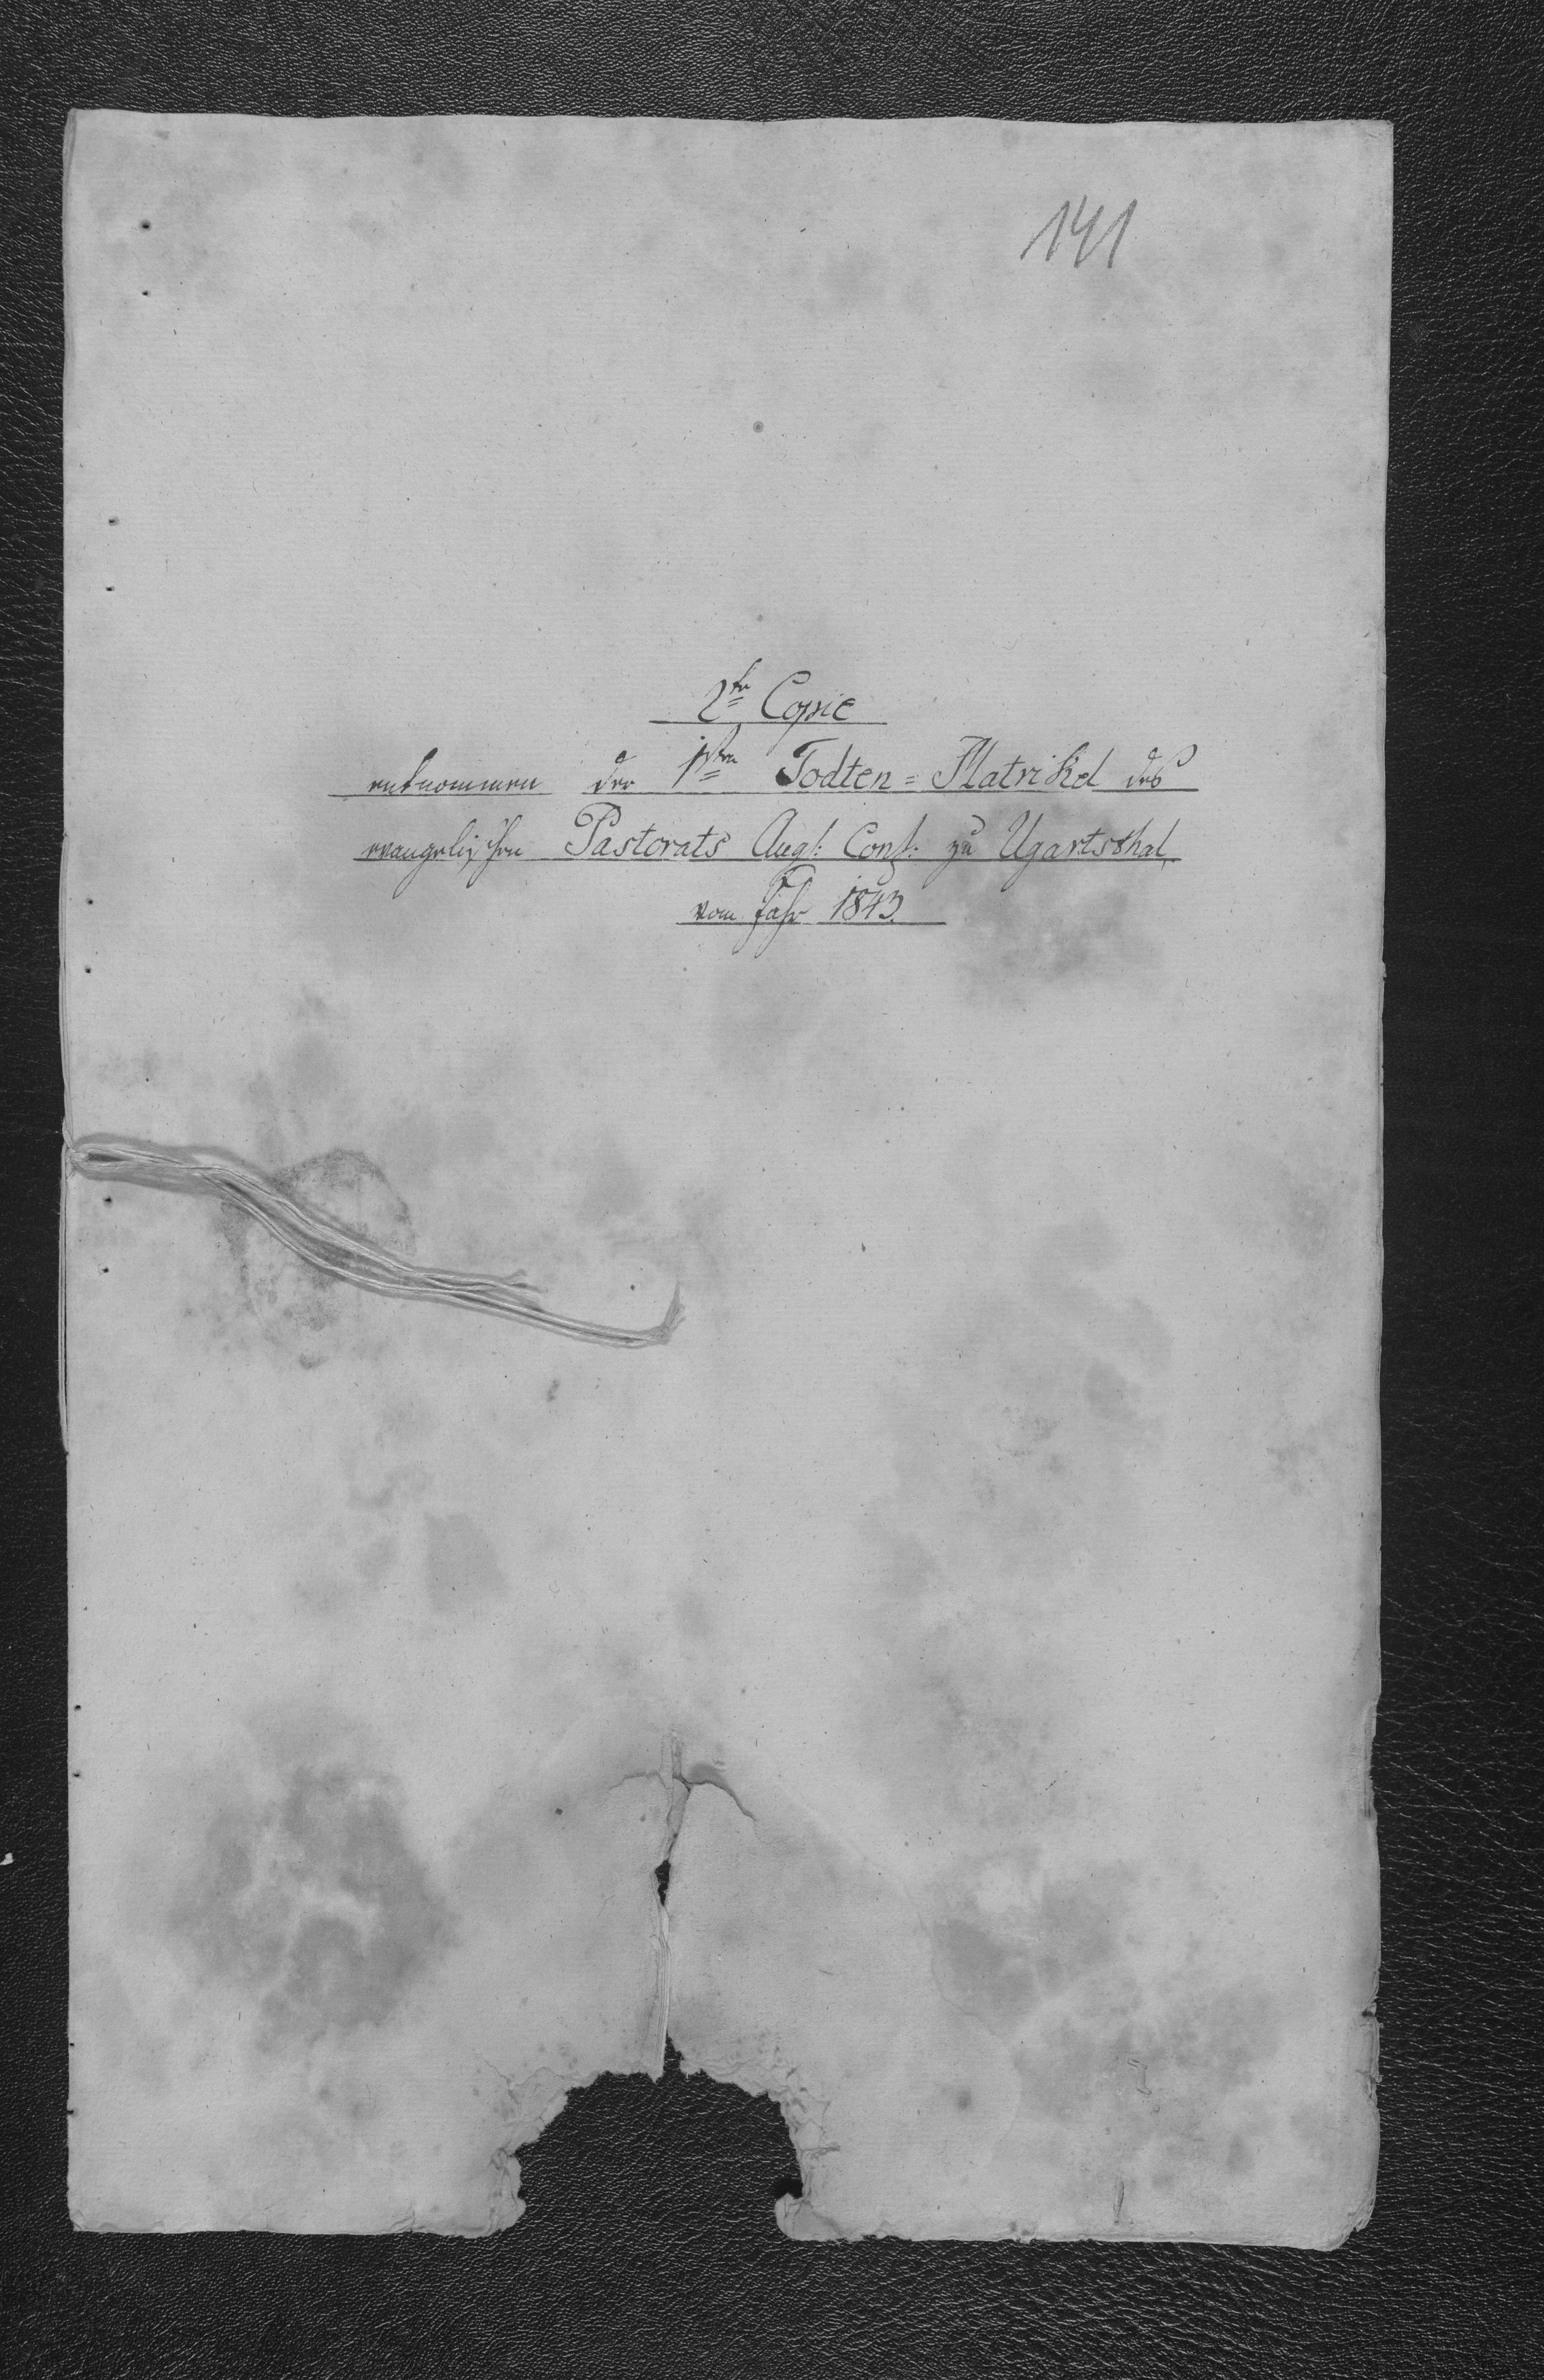 141
2te Copie
entnommen der 1sten Todten=Matrikel des
evangelischen Pastorats Augs: Conf: zu Ugartsthal,
vom Jahr 1843.